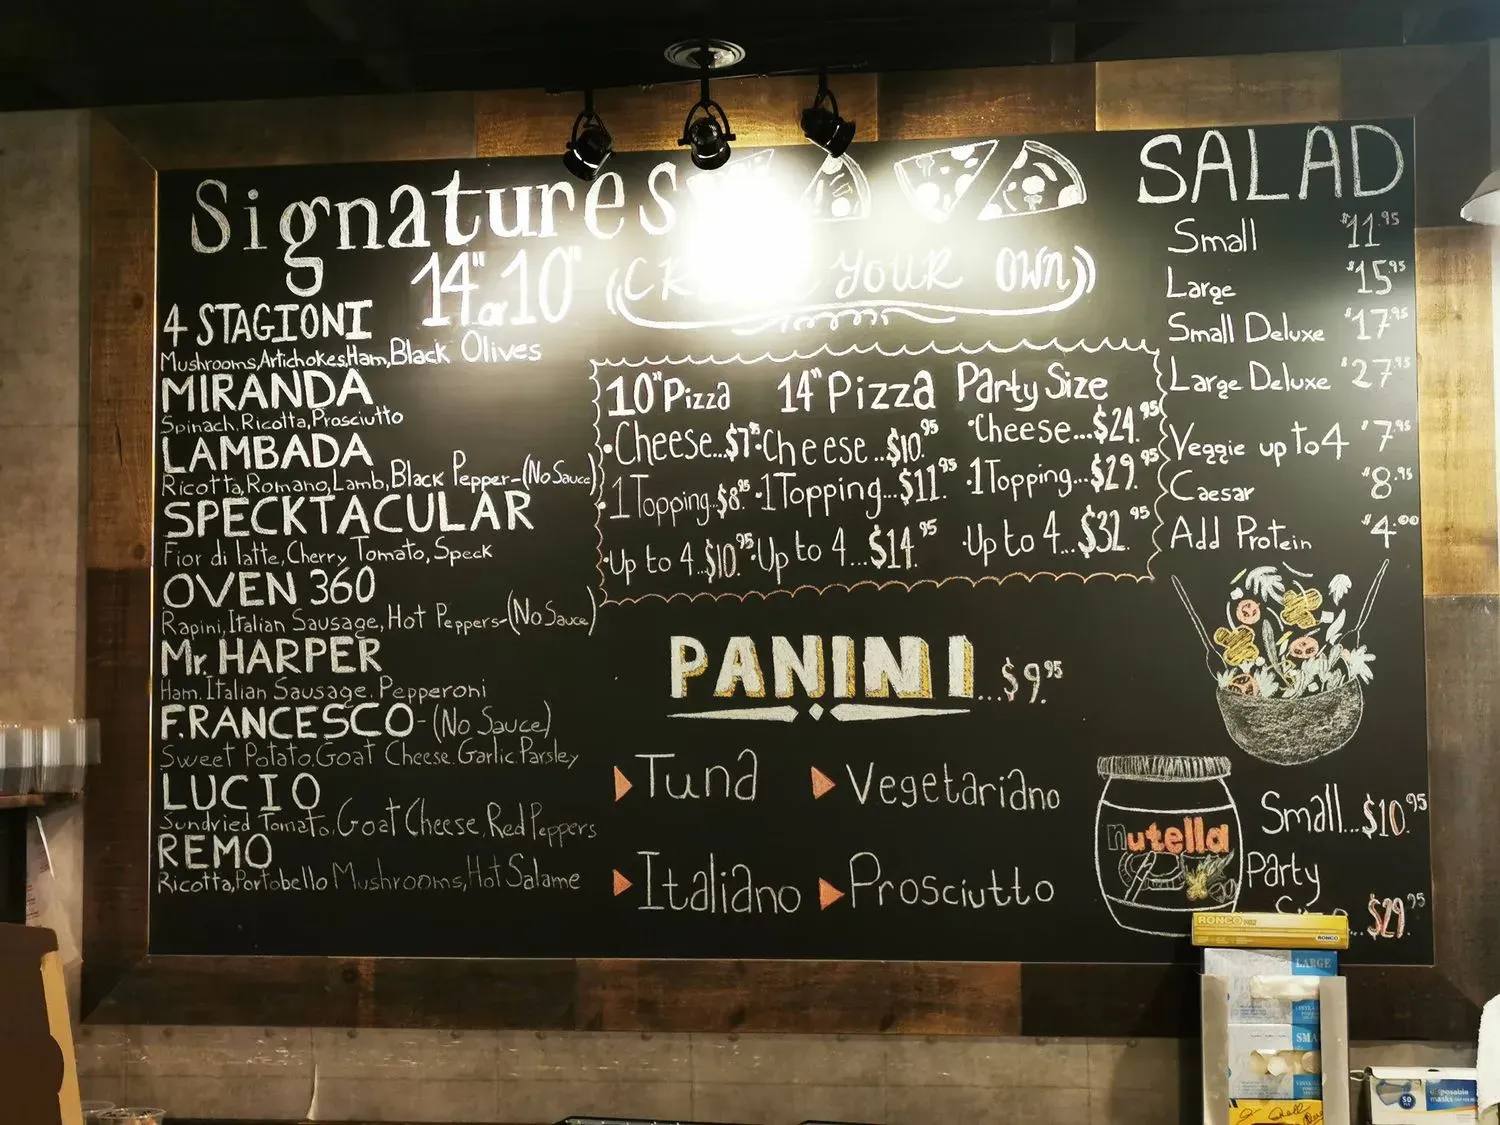 Signatures
14" or 10"
4 STAGIONI
Mushrooms, Artichokes, Ham, Black Olives
MIRANDA
Spinach, Ricotta, Prosciutto
LAMBADA
Ricotta, Romano, Lamb, Black Pepper-(No Sauce)
SPECKTACULAR
Fior di latte, Cherry Tomato, Speck
OVEN 360
Rapini, Italian Sausage, Hot Peppers-(No Sauce)
Mr. HARPER
Ham, Italian Sausage, Pepperoni
F.RANCESCO-(No Sauce)
Sweet Potato, Goat Cheese, Garlic, Parsley
LUCIO
Sundried Tomato, Goat Cheese, Red Peppers
REMO
Ricotta, Portobello Mushrooms, Hot Salame
YOUR OWN
10" Pizza
Cheese...$7.95
1 Topping...$8.95
Up to 4...$10.95
14" Pizza
Cheese...$10.95
1 Topping...$11.95
Up to 4...$14.95
Party Size
Cheese...$24.95
1 Topping...$29.95
Up to 4...$32.95
PANINI...$9.95
Tuna
Vegetariano
Italiano
Prosciutto
SALAD
Small $11.95
Large $15.95
Small Deluxe $17.95
Large Deluxe $27.95
Veggie up to 4 $7.95
Caesar $8.95
Add Protein $4.00
nutella
Small...$10.95
Party
$29.95
RONCO
RONCO
LARGE
disposable
masks
50